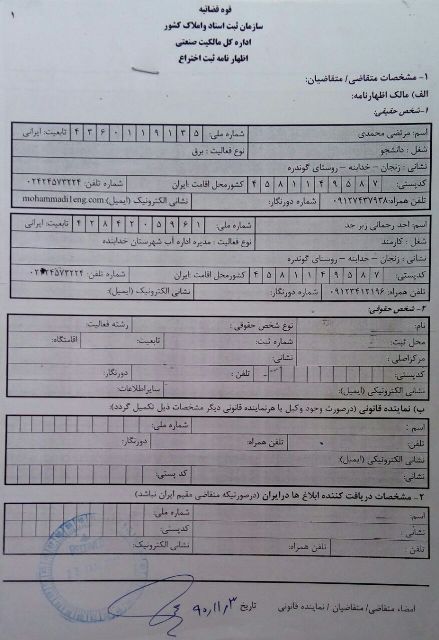 ۱
قوه قضائیه
سازمان ثبت اسناد واملاک کشور
اداره کل مالکیت صنعتی
اظهار نامه ثبت اختراع
۱- مشخصات متقاضی/ متقاضیان:
الف) مالک اظهارنامه:
۱-شخص حقیقی:
اسم: مرتضی محمدی شماره ملی: ۴۳۶۰۱۱۹۱۳۵ تابعیت: ایرانی
شغل : دانشجو نوع فعالیت : برق
نشانی : زنجان – خدابنه – روستای گوندره
کدپستی: ۴۵۸۱۱۴۹۵۸۷ کشورمحل اقامت :ایران شماره تلفن: ۰۲۴۲۴۵۷۳۲۲۴
تلفن همراه:۰۹۱۲۷۴۳۷۹۳۸ شماره دورنگار: نشانی الکترونیک (ایمیل):mohammadi1eng.com
اسم: احد رحمانی زبر جد شماره ملی: ۴۲۸۴۲۰۵۹۶۱ تابعیت: ایرانی
شغل : کارمند نوع فعالیت : مدیره اداره آب شهرستان خدابنده
نشانی : زنجان – خدابنه – روستای گوندره
کدپستی: ۴۵۸۱۱۴۹۵۸۷ کشورمحل اقامت :ایران شماره تلفن: ۲۴۵۷۳۲۲۴
تلفن همراه: ۰۹۱۲۳۴۱۲۱۹۶ شماره دورنگار: نشانی الکترونیک (ایمیل):
۲- شخص حقوقی:
نام: نوع شخص حقوقی : رشته فعالیت:
محل ثبت: شماره ثبت: تابعیت: اقامتگاه:
مرکزاصلی : نشانی:
کدپستی: تلفن : دورنگار:
نشانی الکترونیکی (ایمیل): سایراطلاعات:
ب) نماینده قانونی (درصورت وجود وکیل یا هرنماینده قانونی دیگر مشخصات ذیل تکمیل گردد):
اسم : شماره ملی:
تلفن: تلفن همراه: دورنگار:
نشانی الکترونیکی (ایمیل):
نشانی: کد پستی:
۲- مشخصات دریافت کننده ابلاغ ها درایران (درصورتیکه متقاضی مقیم ایران نباشد)
اسم: شماره ملی:
نشانی : کدپستی:
تلفن : تلفن همراه: نشانی الکترونیک:
امضاء متقاضی/ متقاضیان / نماینده قانونی تاریخ ۹۰,۱۱,۳